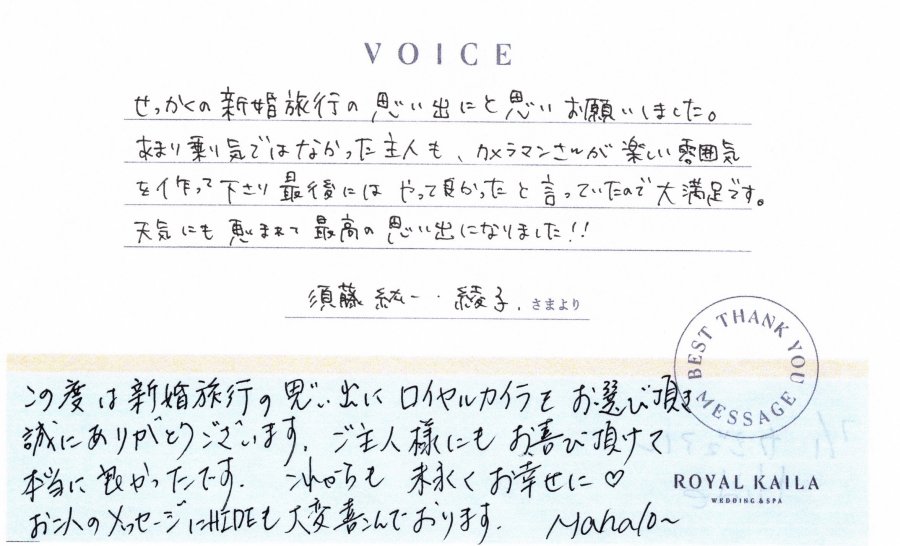 VOICE
せっかくの新婚旅行の思い出にと思いお願いしました。
あまり乗り気ではなかった主人も、カメラマンさんが楽しい雰囲気
を作って下さり最後にはやって良かったと言っていたので大満足です。
天気にも恵まれて最高の思い出になりました!!
須藤 紘一・綾子. さまより
BEST THANK YOU MESSAGE
この度は新婚旅行の思い出にロイヤルカイラをお選び頂き
誠にありがとうございます。ご主人様にもお喜び頂けて
本当に良かったです. これからも末永くお幸せに♡
お二人のメッセージにHIDEも大変喜んでおります. Mahalo~
ROYAL KAILA
WEDDING & SPA